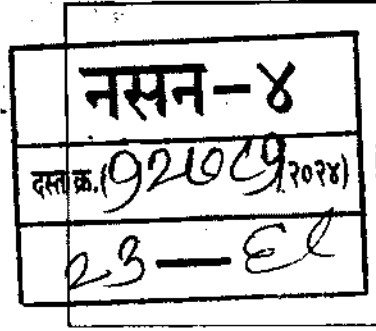 नसन-४
दस्त क्र.(१२७८१/२०२४)
२३ —